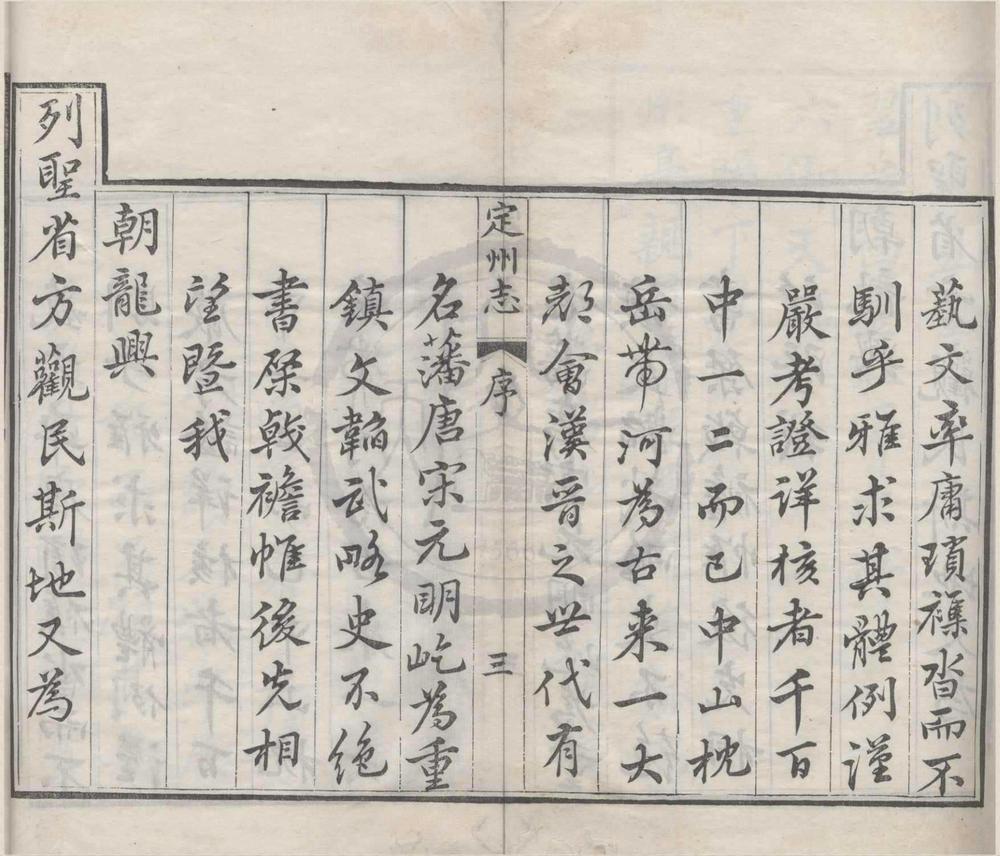 藝文率庸瑣襍沓而不
馴乎雅求其體例謹
嚴考證詳核者千百
中一二而已中山枕
岳帶河為古來一大
都會漢晉之世代有
定州志 序 三
名藩唐宋元明屹為重
鎮文韜武略史不絶
書棨戟襜帷後先相
望暨我
朝龍興
列聖省方觀民斯地又為